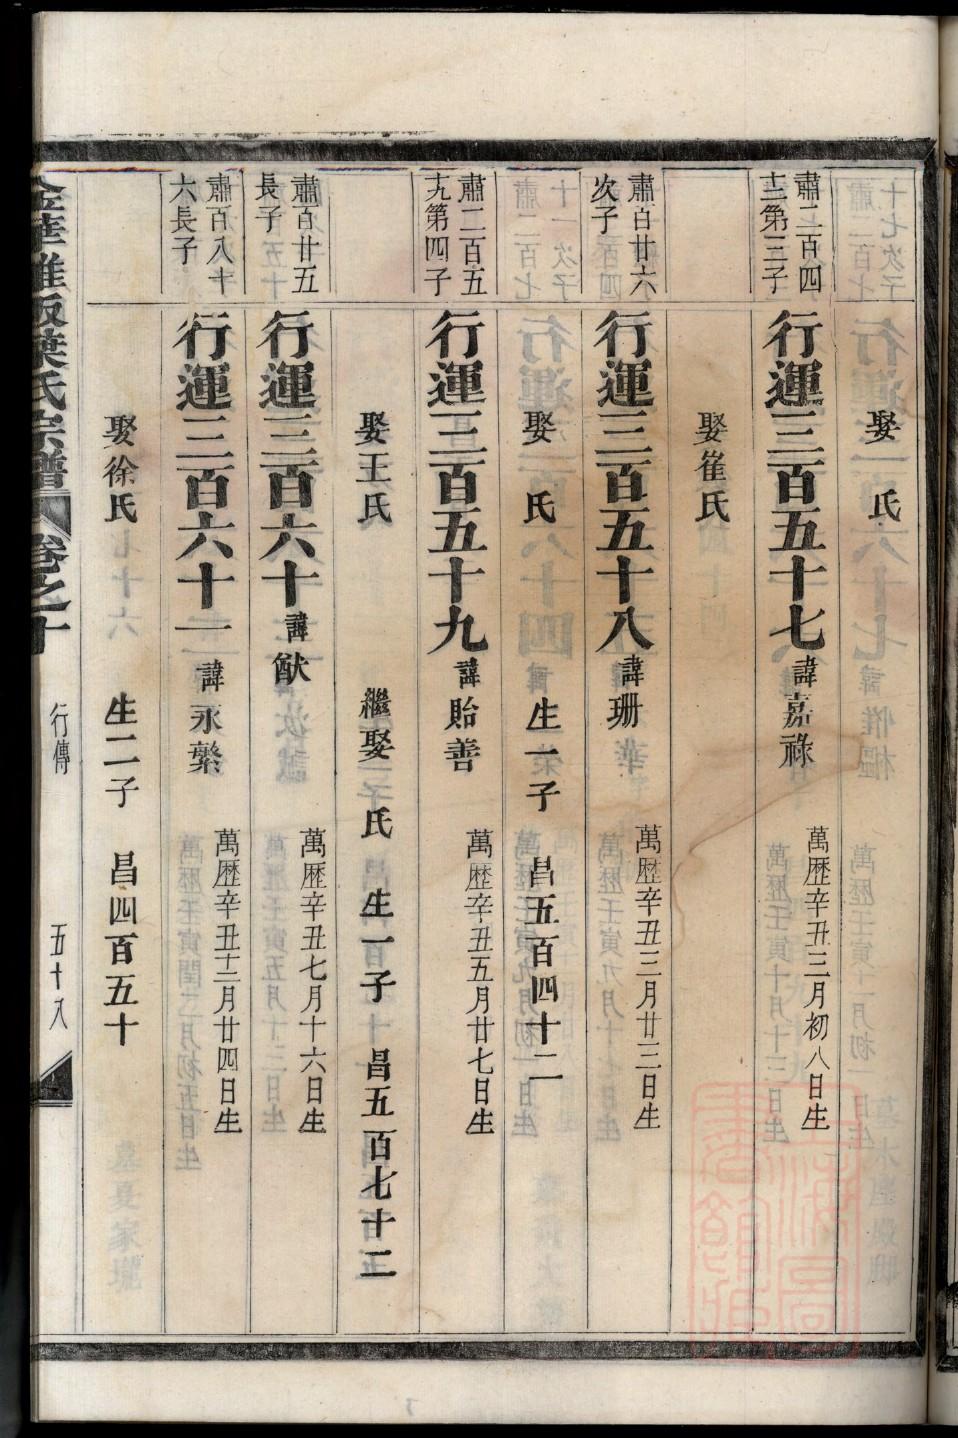 娶 氏
肅二百四
十二第三子
行運三百五十七 諱嘉祿 萬歷辛丑三月初八日生
娶崔氏
肅百廿六
次子
行運三百五十八 諱珊 萬歷辛丑三月廿三日生
娶 氏 生一子 昌五百四十二
肅二百五
十九第四子
行運三百五十九 諱貽善 萬歷辛丑五月廿七日生
娶王氏 繼娶 氏 生一子 昌五百七十二
肅百廿五
長子
行運三百六十 諱猷 萬歷辛丑七月十六日生
肅百八十
六長子
行運三百六十一 諱永繁 萬歷辛丑十二月廿四日生
娶徐氏 生二子 昌四百五十
金華 葉氏宗譜 卷之十 行傳 五十八